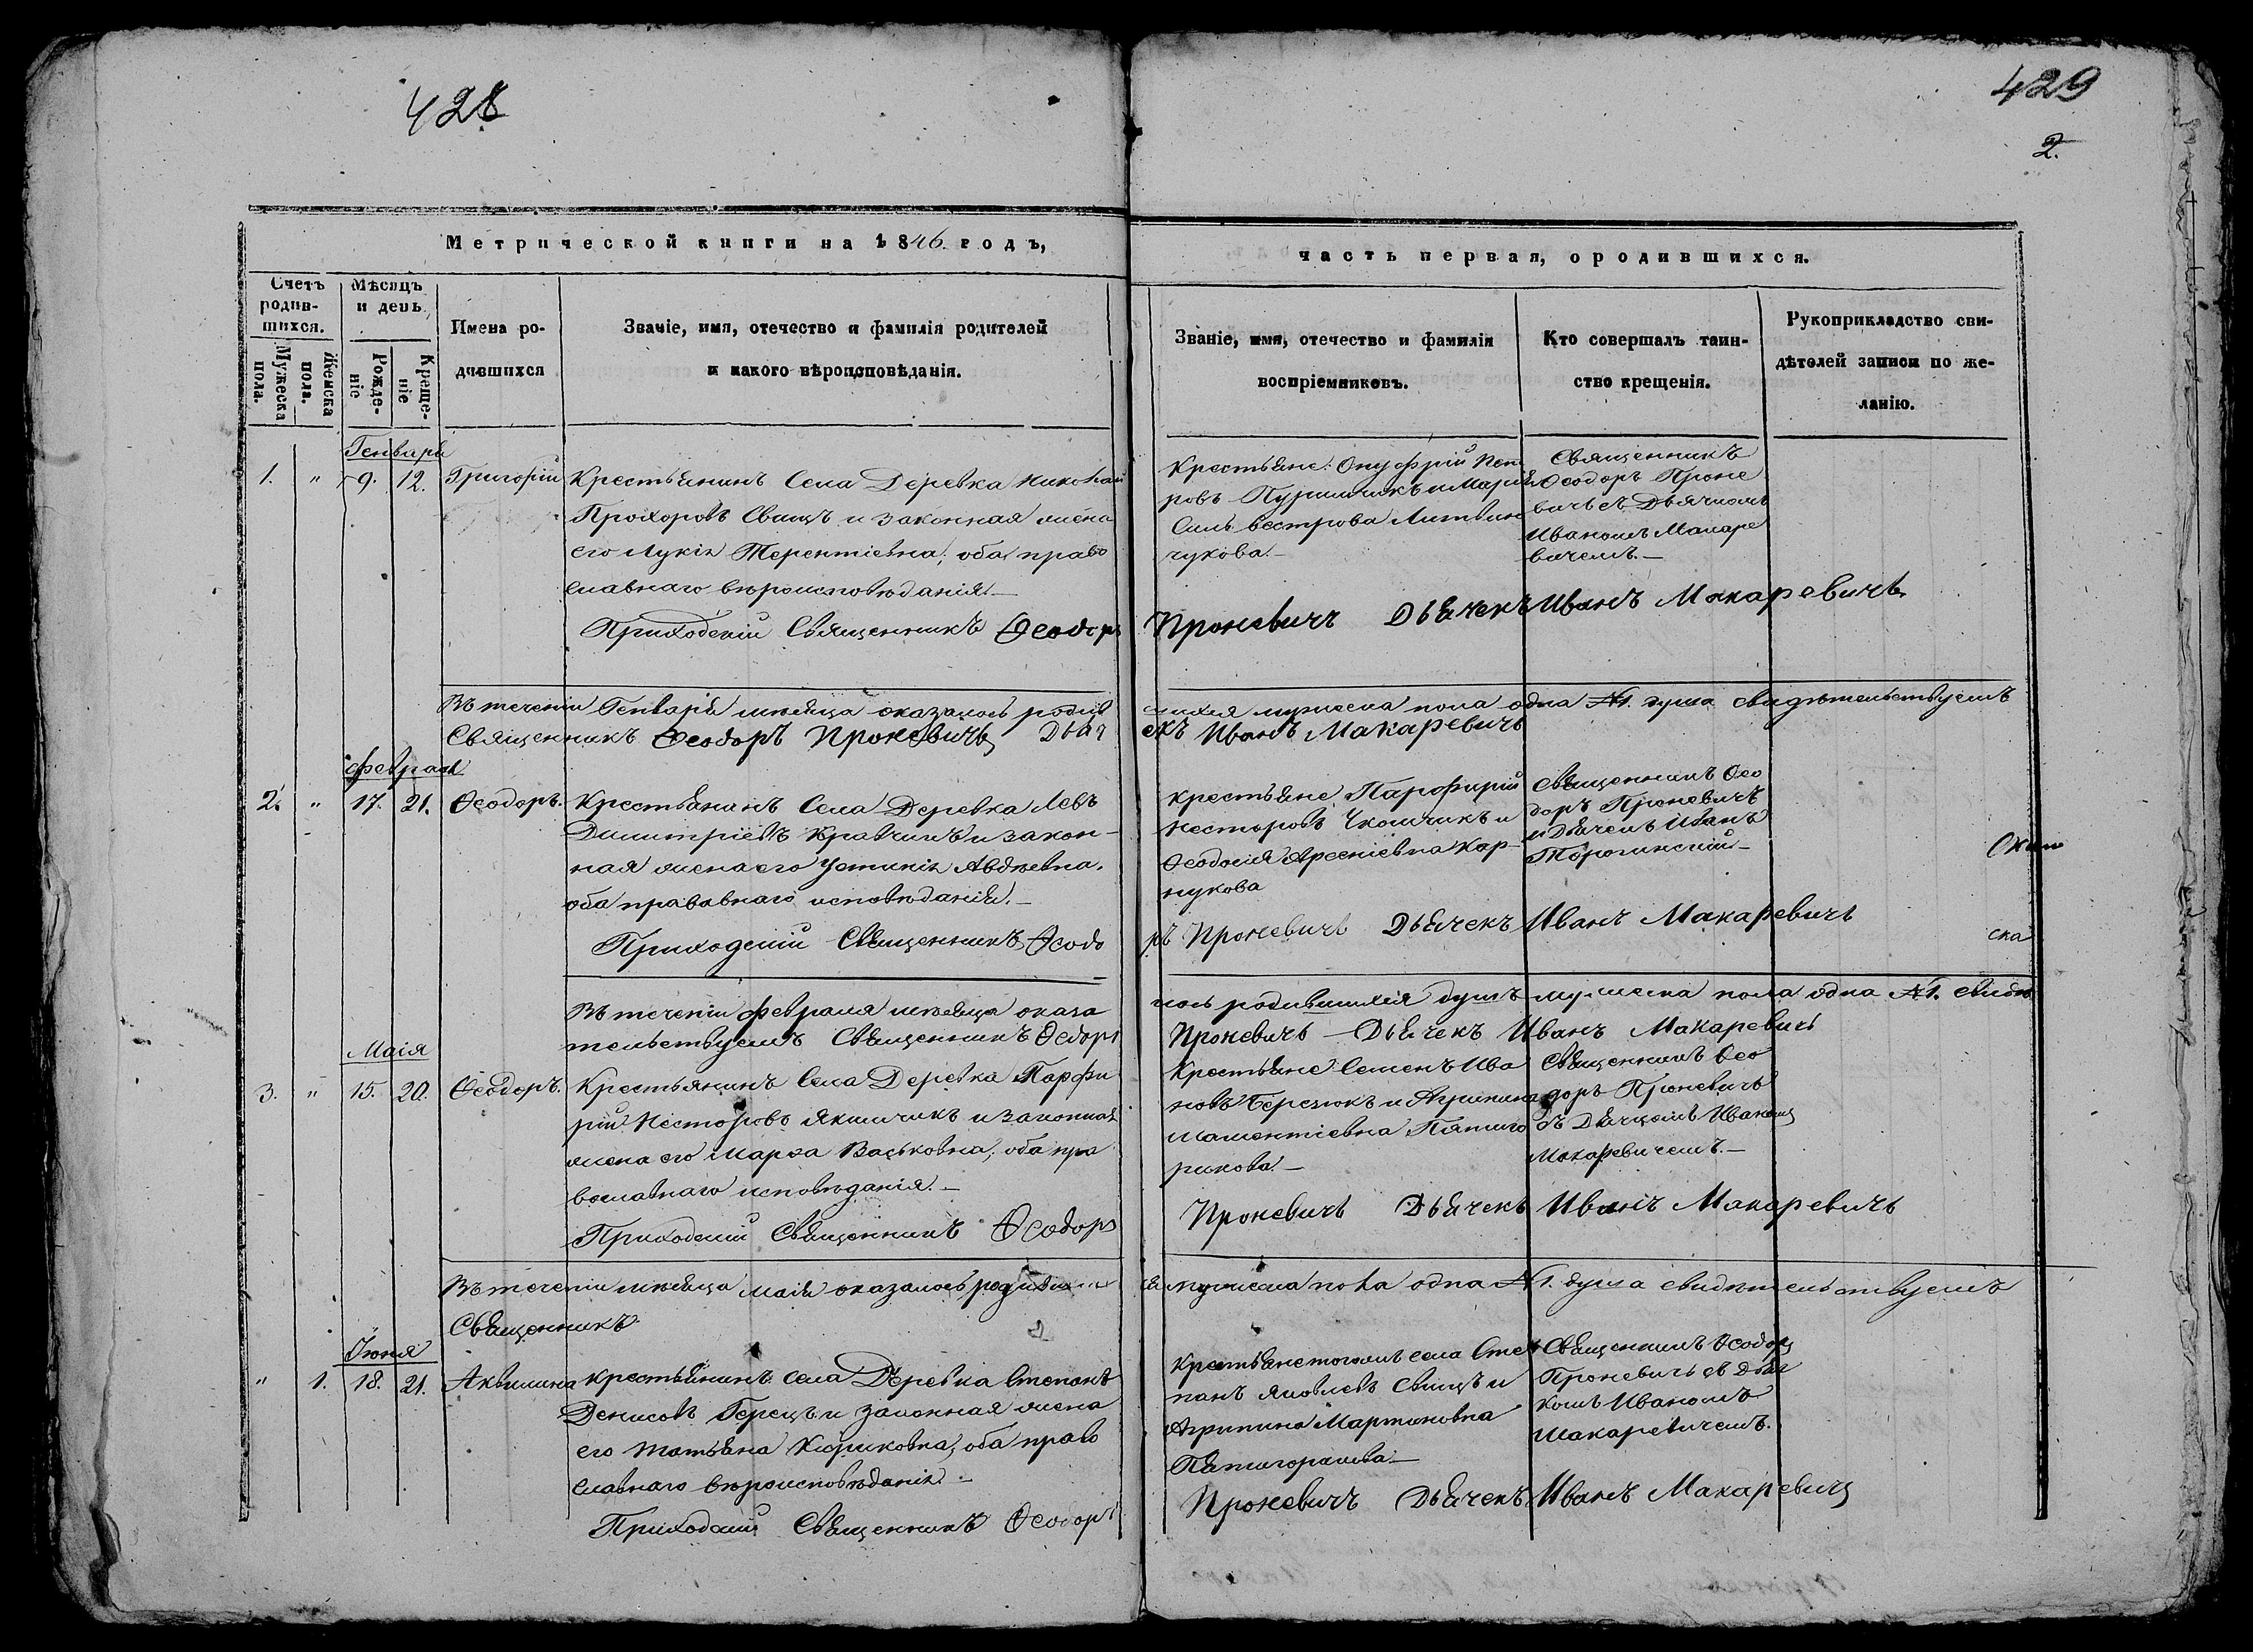 428
429
2.
Метрической книги на 1846. годъ,
часть первая, о родившихся.
Счетъ родив-шихся.
Мужеска пола.
Женска пола.
Мѣсяцъ и день
Рожде-ніе
Креще-ніе
Имена ро-
дившихся
Званіе, имя, отечество и фамилія родителей
и какого вѣроисповѣданія.
Званіе, имя, отечество и фамилія
воспріемниковъ.
Кто совершалъ таин-
ство крещенія.
Рукоприкладство сви-
дѣтелей записи по же-
ланію.
Генваря
1. " 9. 12. Григорій
Крестьянинъ Села Деревка Николай
Прохоровъ Свищъ и законная жена
его Лукія Терентіевна; оба право
славнаго вѣроисповѣданія.—
Приходскій Священникъ Ѳеодоръ
Крестьяне: Онуфрій Пет
ровъ и Марія
Сильвестрова Литвин
чукова.—
Священникъ
Ѳеодоръ Проне
вичъ съ Дьячкомъ
Иваномъ Макаре
вичемъ.—
Проневичъ Дьячекъ Иванъ Макаревичъ
Въ теченіи Генваря мѣсяца оказалось родив
шихся мужеска пола одна №1. душа свидѣтельствуемъ
Священникъ Ѳеодоръ Проневичъ Дьяч
екъ Иванъ Макаревичъ
февраля
2. " 17. 21. Ѳеодоръ.
Крестьянинъ Села Деревка Левъ
Димитріевъ Кравчикъ и закон-
ная жена его Устинія Авдѣевна.
оба прававнаго исповѣданія.—
Приходскій Священникъ Ѳеодо
крестьяне Парофирій
Несторовъ и
Ѳеодосія Арсеніевна Кар-
пукова
Священникъ Ѳео
доръ Проневичъ
и Дьячекъ Иванъ
ръ Проневичъ Дьячекъ Иванъ Макаревичъ
ска
Въ теченіи февраля мѣсяца оказа
лось родившихся душъ мужеска пола одна №1. свидѣ
тельствуемъ Священникъ Ѳедоръ
Проневичъ — Дьячекъ Иванъ Макаревичъ
Маія
3. " 15. 20. Ѳеодоръ.
Крестьянинъ Села Деревка Парфи
рій Несторовъ Якимчикъ и законная
жена его Марѳа Васьковна; оба пра
вославнаго исповѣданія.—
Приходскій Священникъ Ѳеодоръ
Крестьяне Семенъ Ива
новъ Березюкъ и Агрипина
Пятиго
рикова.—
Священникъ Ѳео
доръ Проневичъ
съ Дьячкомъ Иваномъ
Макаревичемъ.—
Проневичъ Дьячекъ Иванъ Макаревичъ
Въ теченіи мѣсяца маія оказалось родившихъ
ся мужеска пола одна №1. душа свидѣтельствуемъ
Священникъ
Іюня
" 1. 18. 21. Акилина
крестьянинъ села Деревка Степанъ
Денисовъ Герецъ и законная жена
его Татьяна Кириковна, оба право
славнаго вѣроисповѣданія.—
Приходскій Священникъ Ѳеодоръ
Крестьяне тогожъ села Сте
панъ Яковлевъ Свищъ и
Агрипина Мартиновна
Пятигорикова.—
Священникъ Ѳеодоръ
Проневичъ съ Дьяч
комъ Иваномъ
Макаревичемъ.
Проневичъ Дьячекъ Иванъ Макаревичъ